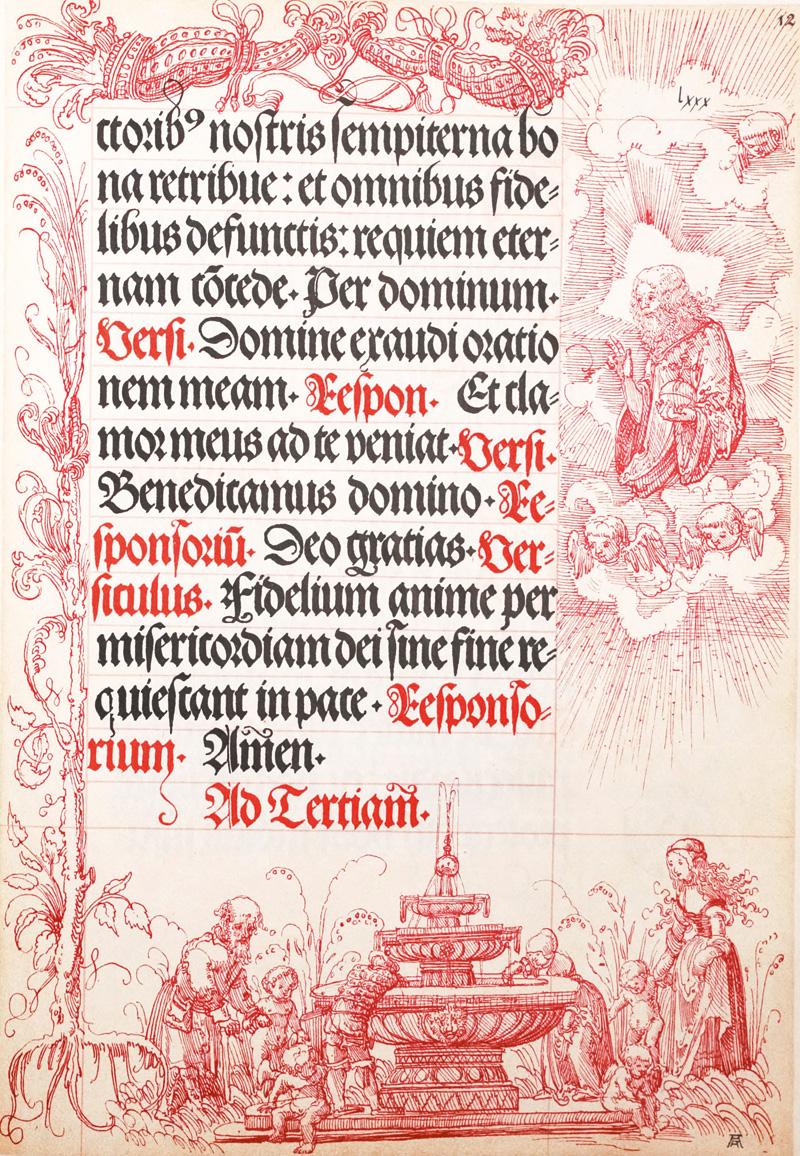 12
lxxx
ctoribꝰ nostris sempiterna bo
na retribue: et omnibus fide⸗
libus defunctis: requiem eter⸗
nam cōcede. Per dominum.
Versi. Domine exaudi oratio
nem meam. Respon. Et cla⸗
mor meus ad te veniat. Versi.
Benedicamus domino. Re⸗
sponsoriū. Deo gratias. Ver⸗
siculus. Fidelium anime per
misericordiam dei sine fine re⸗
quiescant in pace. Responso⸗
rium. Amen.
Ad Tertiam.
AD